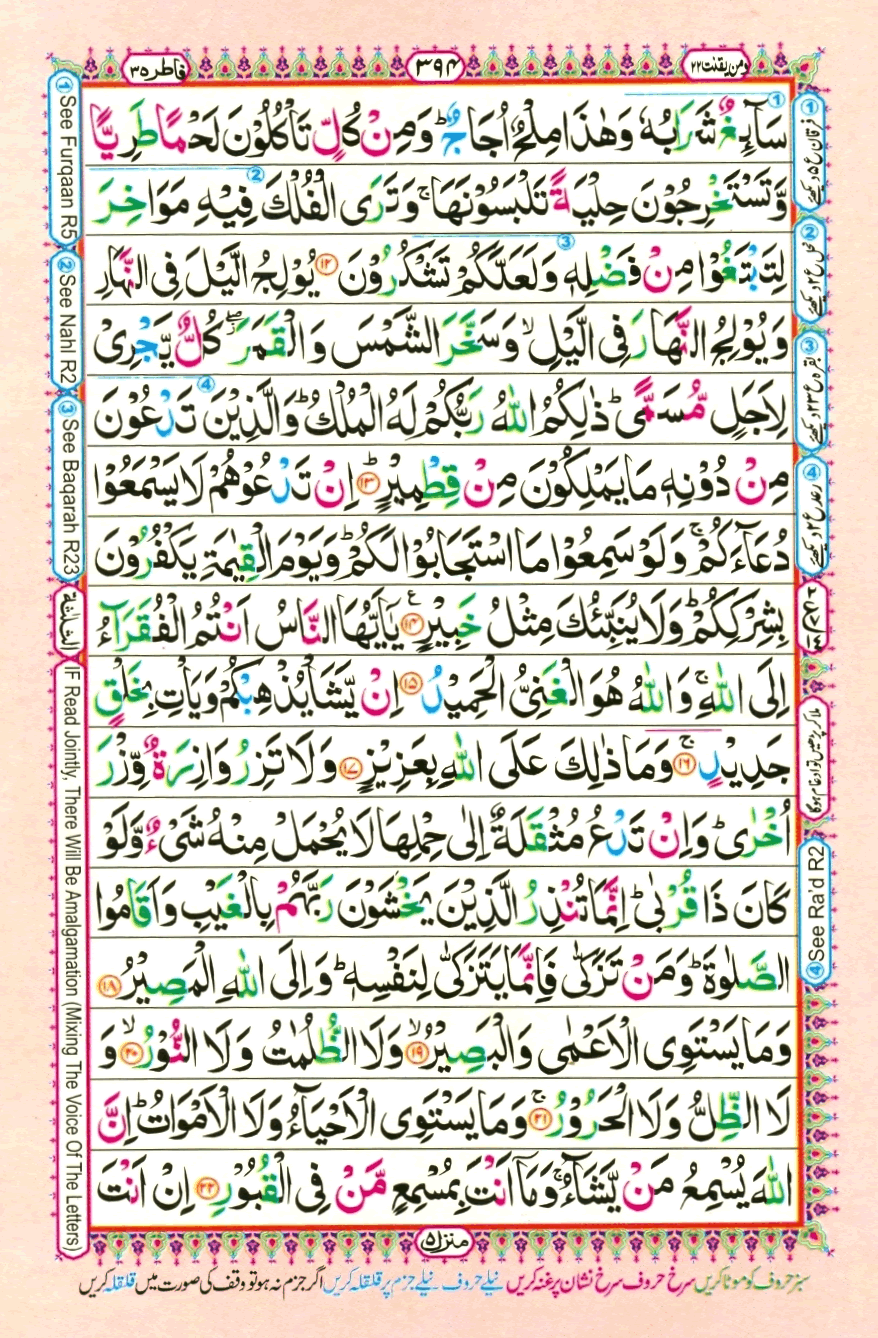 ومن يقنت ٢٢
٣٩٤
فاطر ٣٥
سَآئِغٌ شَرَابُهٗ وَهٰذَا مِلْحٌ اُجَاجٌ ؕ وَمِنْ كُلٍّ تَاْكُلُوْنَ لَحْمًا طَرِيًّا
وَّتَسْتَخْرِجُوْنَ حِلْيَةً تَلْبَسُوْنَهَا ۚ وَتَرَى الْفُلْكَ فِيْهِ مَوَاخِرَ
لِتَبْتَغُوْا مِنْ فَضْلِهٖ وَلَعَلَّكُمْ تَشْكُرُوْنَ ۝۱۲ يُوْلِجُ الَّيْلَ فِى النَّهَارِ
وَيُوْلِجُ النَّهَارَ فِى الَّيْلِ ۙ وَسَخَّرَ الشَّمْسَ وَالْقَمَرَ ۖ كُلٌّ يَّجْرِىْ
لِاَجَلٍ مُّسَمًّى ؕ ذٰلِكُمُ اللّٰهُ رَبُّكُمْ لَهُ الْمُلْكُ ؕ وَالَّذِيْنَ تَدْعُوْنَ
مِنْ دُوْنِهٖ مَا يَمْلِكُوْنَ مِنْ قِطْمِيْرٍ ؕ ۝۱۳ اِنْ تَدْعُوْهُمْ لَا يَسْمَعُوْا
دُعَآءَكُمْ ۚ وَلَوْ سَمِعُوْا مَا اسْتَجَابُوْا لَكُمْ ؕ وَيَوْمَ الْقِيٰمَةِ يَكْفُرُوْنَ
بِشِرْكِكُمْ ؕ وَلَا يُنَبِّئُكَ مِثْلُ خَبِيْرٍ ۝۱۴ ع يٰٓاَيُّهَا النَّاسُ اَنْتُمُ الْفُقَرَآءُ
اِلَى اللّٰهِ ۚ وَاللّٰهُ هُوَ الْغَنِىُّ الْحَمِيْدُ ۝۱۵ اِنْ يَّشَاْ يُذْهِبْكُمْ وَيَاْتِ بِخَلْقٍ
جَدِيْدٍ ۚ ۝۱۶ وَمَا ذٰلِكَ عَلَى اللّٰهِ بِعَزِيْزٍ ۝۱۷ وَلَا تَزِرُ وَازِرَةٌ وِّزْرَ
اُخْرٰى ؕ وَاِنْ تَدْعُ مُثْقَلَةٌ اِلٰى حِمْلِهَا لَا يُحْمَلْ مِنْهُ شَىْءٌ وَّلَوْ
كَانَ ذَا قُرْبٰى ؕ اِنَّمَا تُنْذِرُ الَّذِيْنَ يَخْشَوْنَ رَبَّهُمْ بِالْغَيْبِ وَاَقَامُوا
الصَّلٰوةَ ؕ وَمَنْ تَزَكّٰى فَاِنَّمَا يَتَزَكّٰى لِنَفْسِهٖ ؕ وَاِلَى اللّٰهِ الْمَصِيْرُ ۝۱۸
وَمَا يَسْتَوِى الْاَعْمٰى وَالْبَصِيْرُ ۙ ۝۱۹ وَلَا الظُّلُمٰتُ وَلَا النُّوْرُ ۙ ۝۲۰ وَ
لَا الظِّلُّ وَلَا الْحَرُوْرُ ۚ ۝۲۱ وَمَا يَسْتَوِى الْاَحْيَآءُ وَلَا الْاَمْوَاتُ ؕ اِنَّ
اللّٰهَ يُسْمِعُ مَنْ يَّشَآءُ ۚ وَمَآ اَنْتَ بِمُسْمِعٍ مَّنْ فِى الْقُبُوْرِ ۝۲۲ اِنْ اَنْتَ
منزل ۵
سبز حروف کو موٹا کریں سرخ حروف سرخ نشان پر غنہ کریں نیلے حروف نیلے جزم پر قلقلہ کریں اگر جزم نہ ہو تو وقف کی صورت میں قلقلہ کریں
① See Furqaan R5
② See Nahl R2
③ See Baqarah R23
الثلثة
IF Read Jointly, There Will Be Amalgamation (Mixing The Voice Of The Letters)
① فرقان ع ۵ دیکھئے
② نحل ع ۲ دیکھئے
③ بقرہ ع ۲۳ دیکھئے
④ رعد ع ۲ دیکھئے
ملا کر پڑھیں تو ادغام ہوگا
④ See Ra'd R2